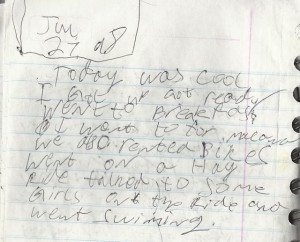 Jul
27, 08
Today was cool
I got up got ready
went to Breakfast
I went to
we also rented Bikes
went on a Hay
Ride talked to some
Girls on the Ride and
went swiming.